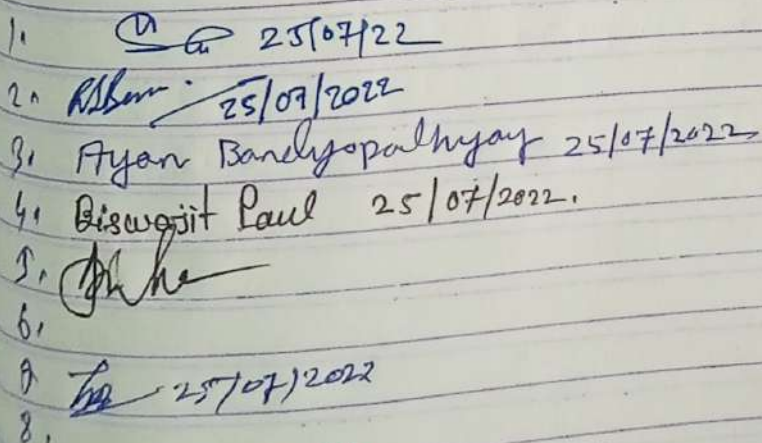 1. 25/07/22
2. 25/07/2022
3. Ayan Bandyopadhyay 25/07/2022
4. Biswajit Paul 25/07/2022.
5.
6.
7 25/07/2022
8.